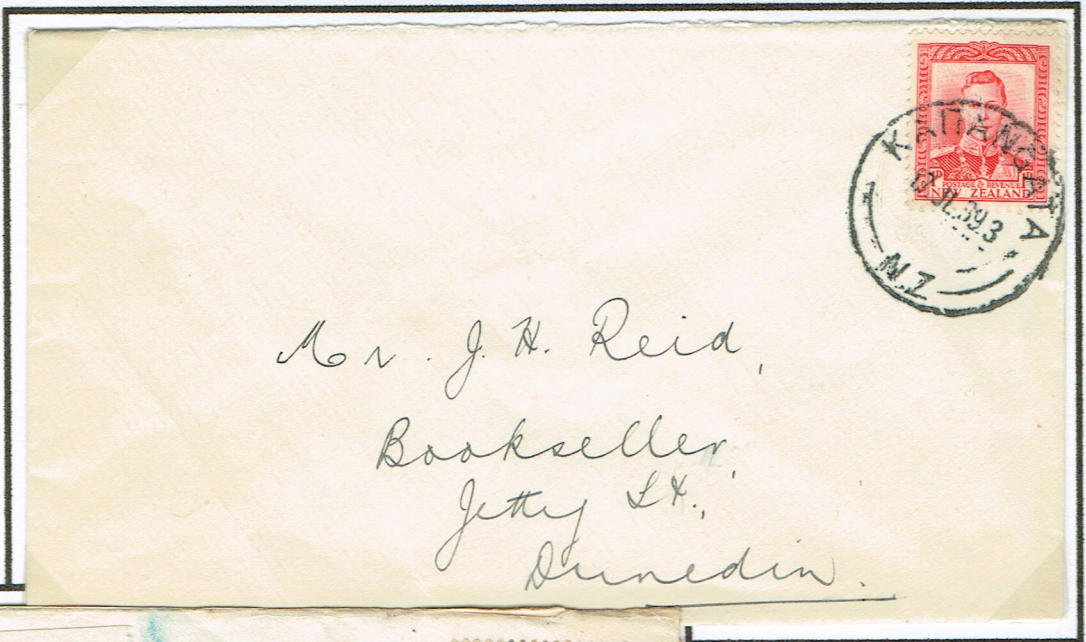 KAITANGATA
JL.39 3
N.Z
1D POSTAGE & REVENUE 1D
NEW ZEALAND
Mr. J. H. Reid,
Bookseller,
Jetty St.,
Dunedin.